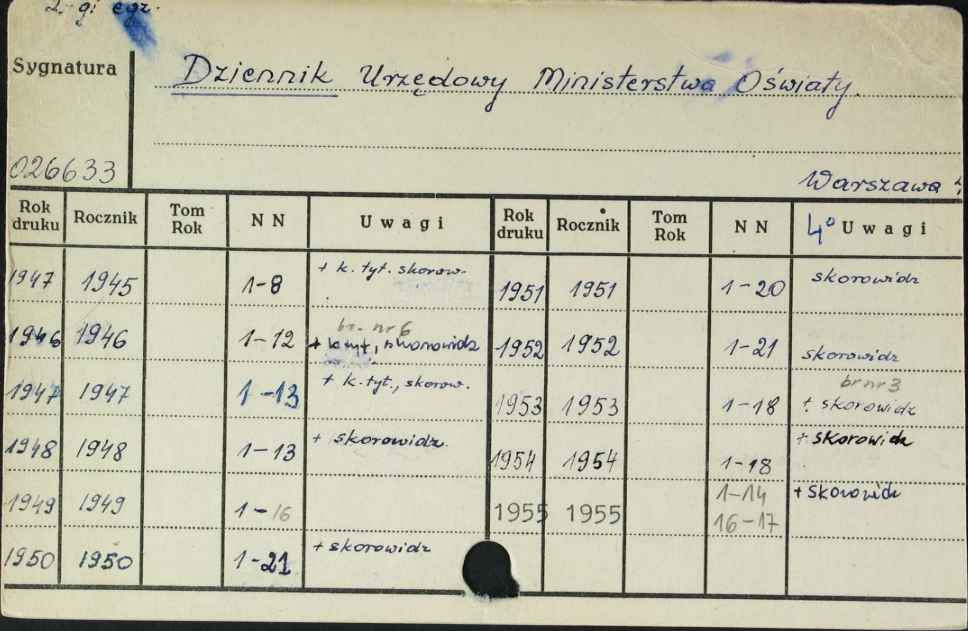 2-gi egz.
Sygnatura
Dziennik Urzędowy Ministerstwa Oświaty.
026633
Warszawa
Rok druku Rocznik Tom Rok N N Uwagi Rok druku Rocznik Tom Rok N N 4° Uwagi
1947 1945 1-8 + k. tyt. skorow. 1951 1951 1-20 skorowidz
br. nr 6
1946 1946 1-12 + k. tyt, skorowidz 1952 1952 1-21 skorowidz
br nr 3
1947 1947 1-13 + k. tyt., skorow. 1953 1953 1-18 + skorowidz
1948 1948 1-13 + skorowidz. 1954 1954 1-18 + skorowidz
1949 1949 1-16 1955 1955 1-14 + skorowidz
16-17
1950 1950 1-21 + skorowidz